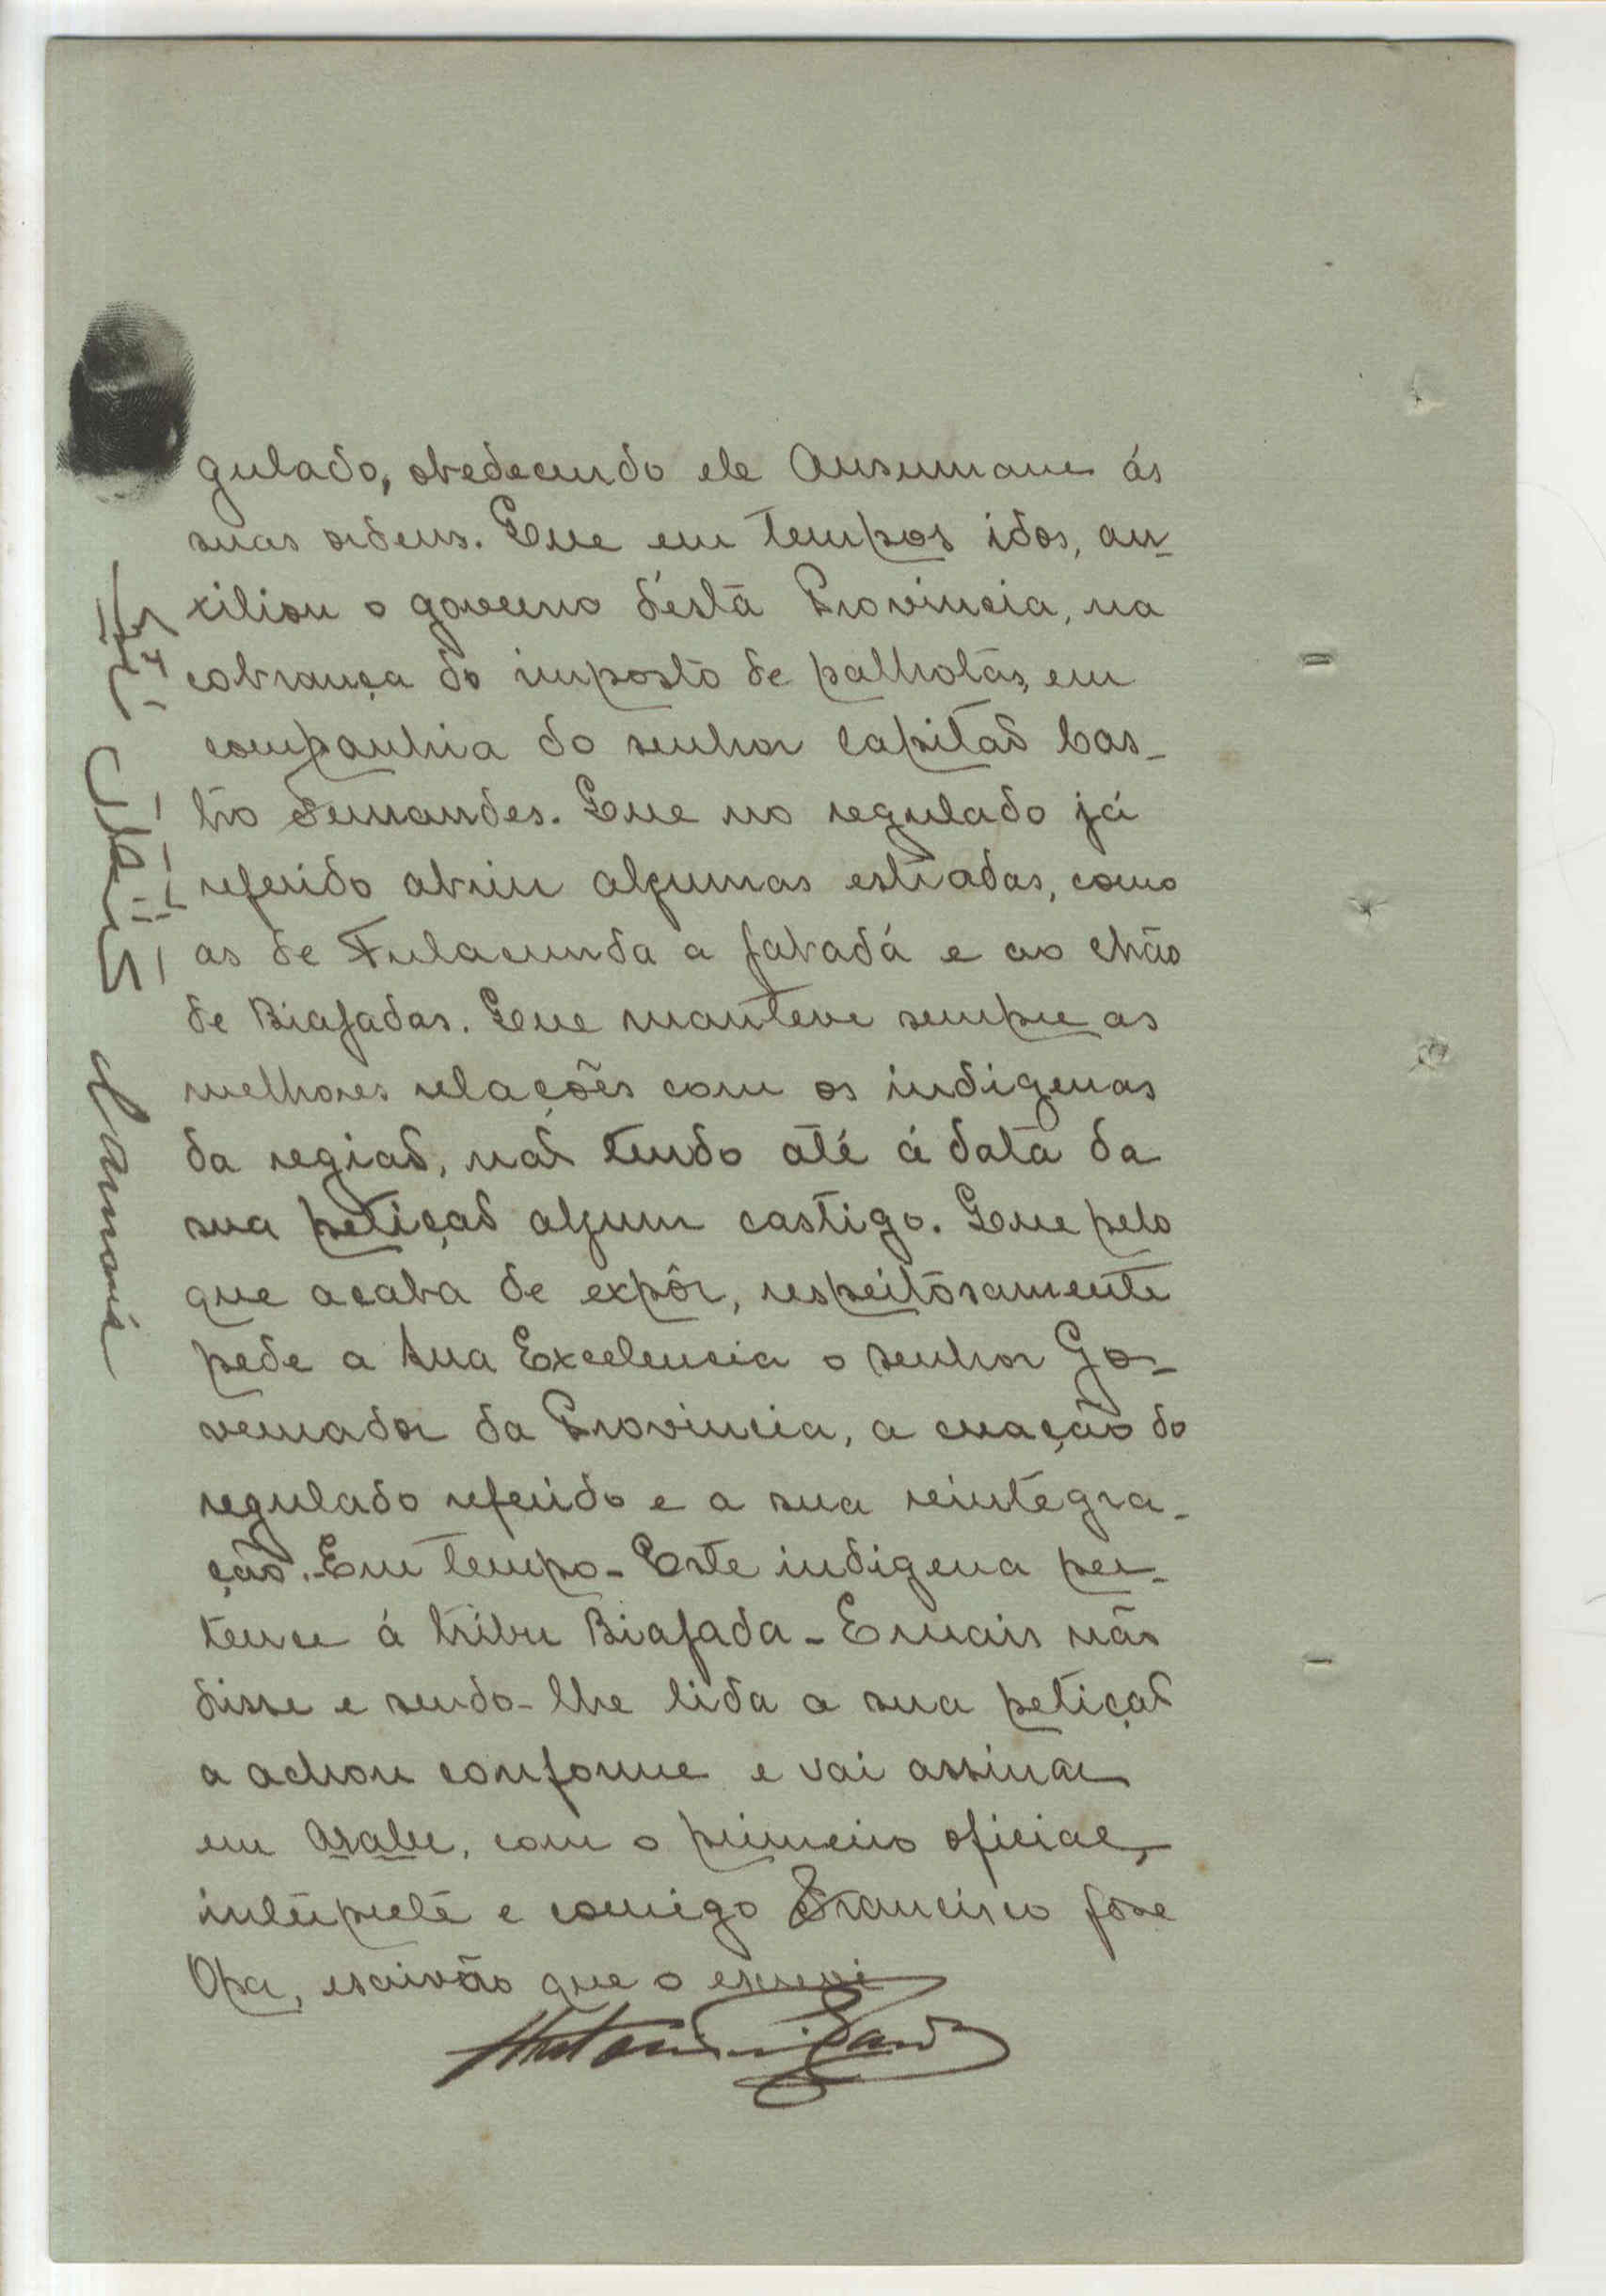 gulado, obedecendo ele Ansumane ás
suas ordens. Que em tempos idos, au-
xiliou o governo d'ésta Provincia, na
cobrança do imposto de palhotas, em
companhia do senhor capitão Cas-
tro Fernandes. Que no regulado já
referido abriu algumas estradas, como
as de Fulacunda a Jabadá e ao chão
de Biafadas. Que manteve sempre as
melhores relações com os indigenas
da região, não tendo até á data da
sua petição algum castigo. Que pelo
que acaba de expôr, respeitosamente
pede a Sua Excelencia o senhor Go-
vernador da Provincia, a creação do
regulado referido e a sua reintegra-
ção.-Em tempo-Este indigena per-
tence á tribu Biafada-E mais não
disse e sendo-lhe lida a sua petição
a achou conforme e vai assinar
em arabe, com o primeiro oficial,
intérprete e comigo Francisco José
Opa, escrivão que o escrevi